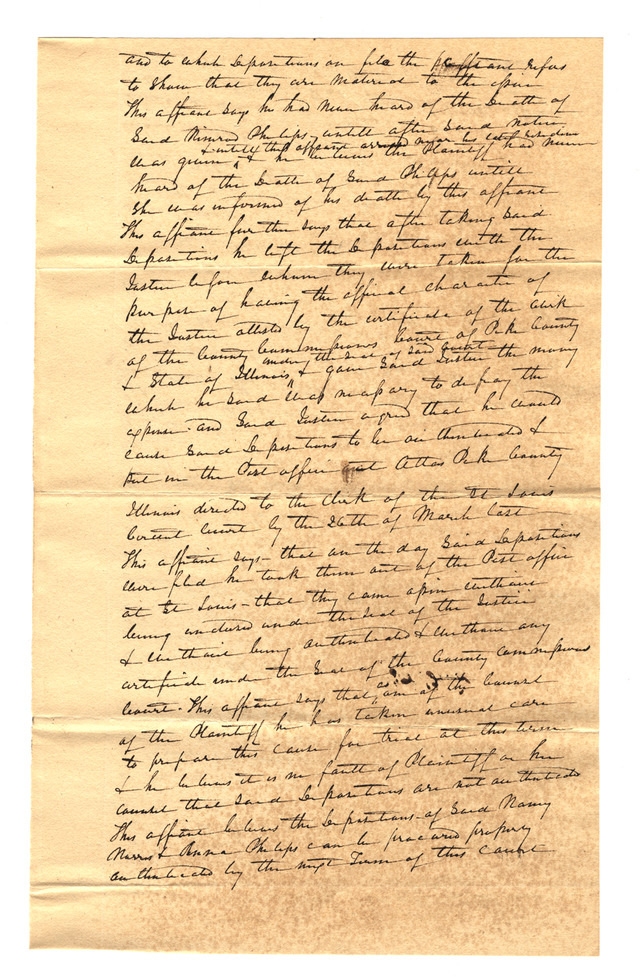 and to which Depositions on file the affiant refers
to show that they are material to the issue
This affiant says he had never heard of the Death of
said Phillips untill after said notice
& untill this affiant arrived near his
was given & he believes the Plaintiff had never
heard of the Death of said Philips untill
she was informed of his death by this affiant
This affiant further says that after taking said
Depositions he left the Depositions with the
Justice before whom they were taken for the
purpose of having the official character of
the Justice attested by the certificate of the Clerk
of the County Commissioners Court of Pike County
under the Seal of said Court
& State of Illinois, & gave said Justice the money
which he said was necessary to defray the
expense - and said Justice agreed that he would
cause said Depositions to be authenticated &
put in the Post office at Atlas Pike County
Illinois directed to the Clerk of the St Louis
Circuit Court by the 26th of March last
This affiant says - that on the day said Depositions
were filed he took them out of the Post office
at St Louis - that they came open without
being enclosed under the Seal of the Justice
& without being authenticated & without any
certificate under the Seal of the County Commissioners
Court. This affiant says that as one of the Counsel
of the Plaintiff he has taken unusual care
to prepare this cause for trial at this term
& he believes it is no fault of Plaintiff or her
counsel that said Depositions are not authenticated
This affiant believes the Depositions of said Nancy
Morris & Anna Philips can be procured properly
authenticated by the next Term of this Court